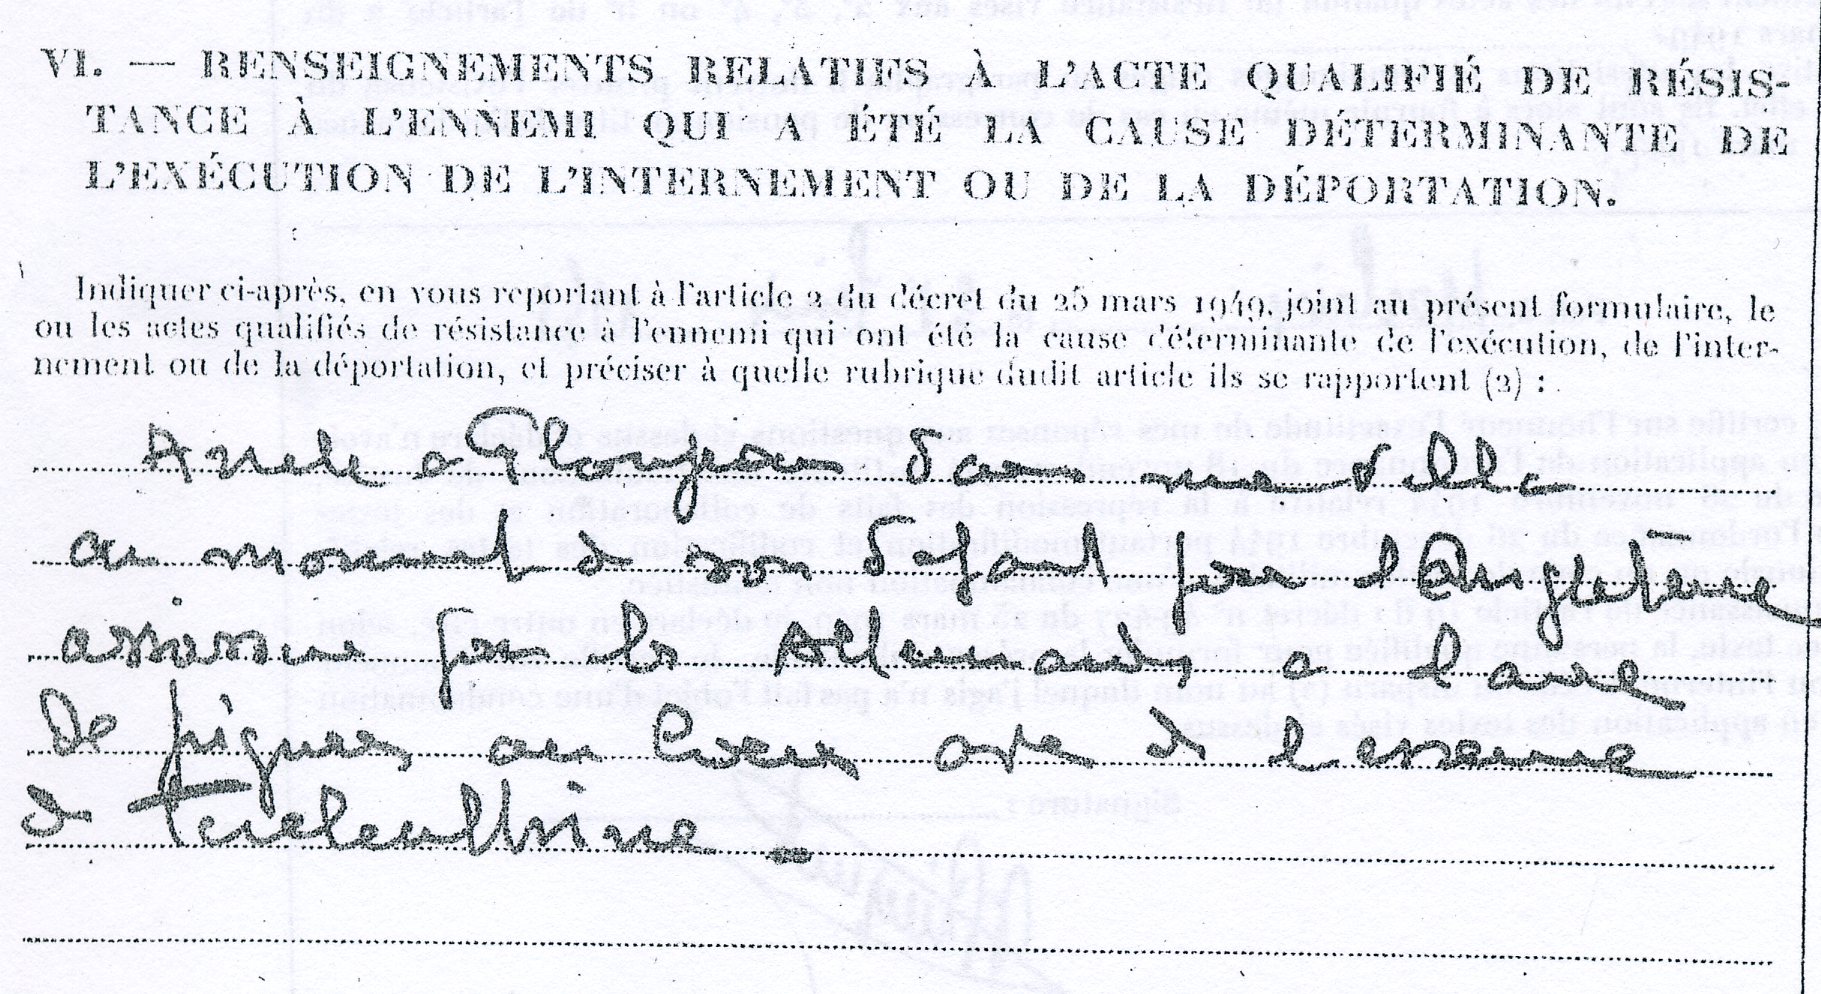 VI. — RENSEIGNEMENTS RELATIFS À L'ACTE QUALIFIÉ DE RÉSIS-
TANCE À L'ENNEMI QUI A ÉTÉ LA CAUSE DÉTERMINANTE DE
L'EXÉCUTION DE L'INTERNEMENT OU DE LA DÉPORTATION.
Indiquer ci-après, en vous reportant à l'article 2 du décret du 25 mars 1949, joint au présent formulaire, le
ou les actes qualifiés de résistance à l'ennemi qui ont été la cause déterminante de l'exécution, de l'inter-
nement ou de la déportation, et préciser à quelle rubrique dudit article ils se rapportent (2) :
a Plougean dans une villa
au moment de son départ pour l'Angleterre
assassiné par les Allemands a l'aide
de piqures au Coeur avec de l'essence
de terebenthine –